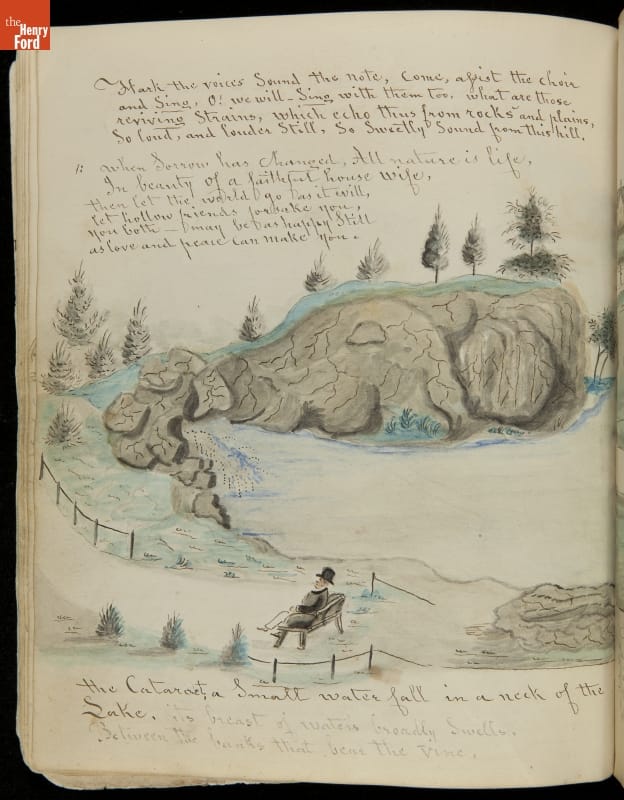 the
Henry
Ford
Hark the voices Sound the note, Come, assist the choir
and Sing, O! we will - Sing with them too. what are those
reviving Strains, which echo thus from rocks and plains,
So loud, and louder Still, So Sweetly Sound from this hill.
when Sorrow has Changed, All nature is life,
In beauty of a faithful house wife,
then let the world go as it will,
let hollow friends forsake you,
you both - may be as happy Still
as love and peace Can make you.
the Cataract, a Small water fall in a neck of the
Lake. its breast of waters broadly Swells.
Between the banks that bear the vine.